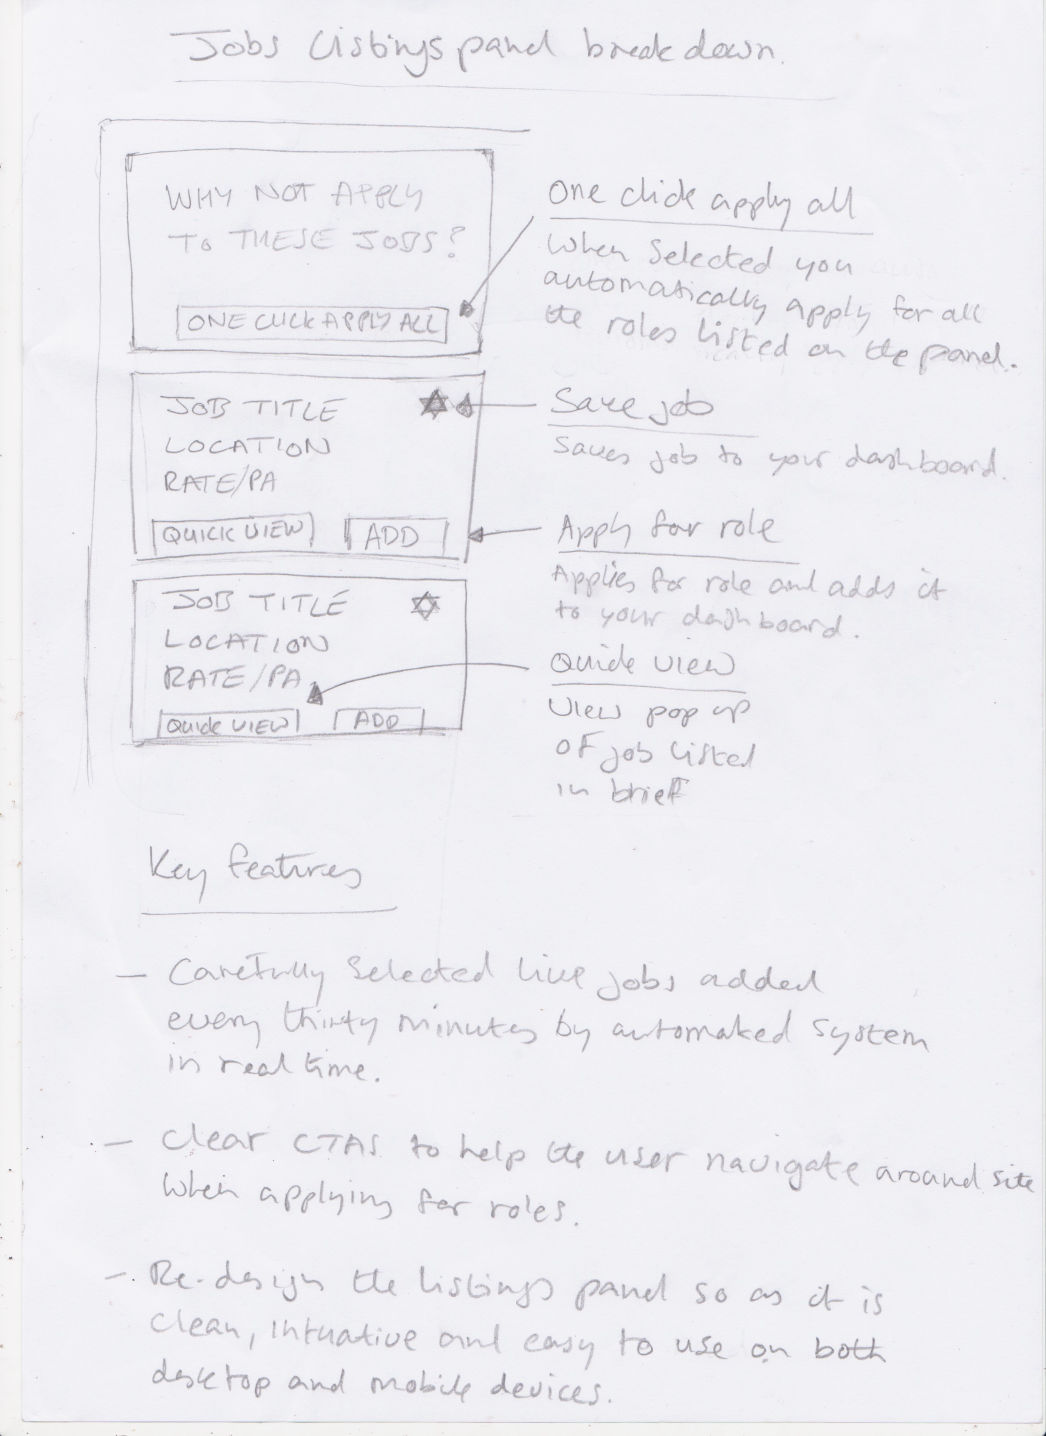 Jobs listings panel breakdown.
WHY NOT APPLY
TO THESE JOBS?
ONE CLICK APPLY ALL
One click apply all
When selected you
automatically apply for all
the roles listed on the panel.
JOB TITLE
LOCATION
RATE/PA
QUICK VIEW
ADD
Save job
Saves job to your dashboard.
Apply for role
Applies for role and adds it
to your dashboard.
JOB TITLE
LOCATION
RATE/PA
Quick VIEW
ADD
Quick view
View pop up
of job listed
in brief
Key features
— Carefully selected live jobs added
every thirty minutes by automaked system
in real time.
— Clear CTAS to help the user navigate around site
when applying for roles.
— Re-design the listings panel so as it is
clean, intuative and easy to use on both
desktop and mobile devices.